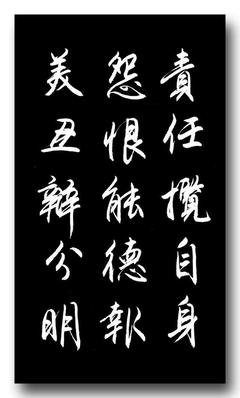 責任攬自身
怨恨能德報
美丑辯分明